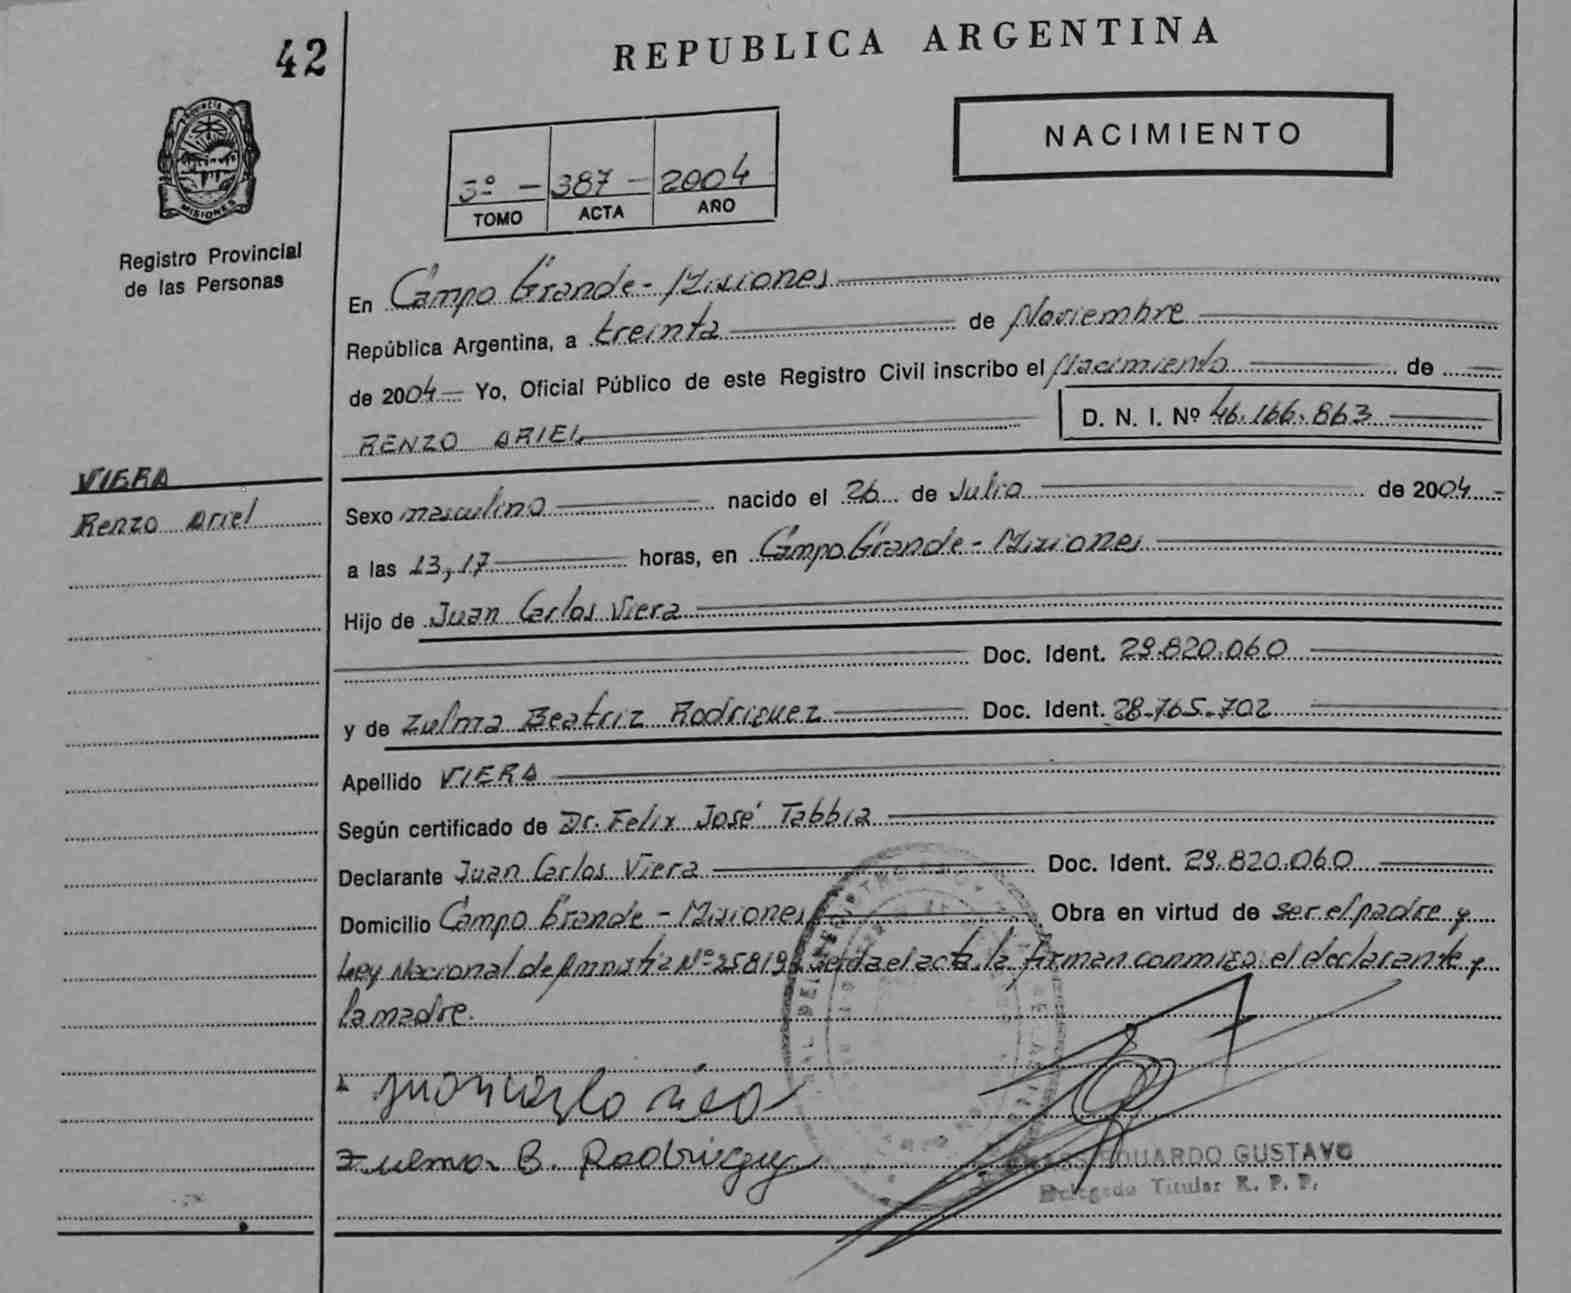 42
REPUBLICA ARGENTINA
NACIMIENTO
3º - 387 - 2004
TOMO ACTA AÑO
PROVINCIA DE
MISIONES
Registro Provincial
de las Personas
En Campo Grande - Misiones
República Argentina, a treinta de Noviembre
de 2004 Yo, Oficial Público de este Registro Civil inscribo el Nacimiento de
RENZO ARIEL D. N. I. Nº 46.166.863
VIERA
Renzo Ariel
Sexo masculino nacido el 26 de Julio de 2004
a las 13,17 horas, en Campo Grande - Misiones
Hijo de Juan Carlos Viera
Doc. Ident. 29.820.060
y de Zulma Beatriz Rodriguez Doc. Ident. 28.765.702
Apellido VIERA
Según certificado de Dr. Felix José Tabbia
Declarante Juan Carlos Viera Doc. Ident. 29.820.060
Domicilio Campo Grande - Misiones Obra en virtud de ser el padre y
Ley Nacional de Amnistia Nº 25819 el acta, la firman conmigo el declarante y
la madre.
Zulma B. Rodriguez
EDUARDO GUSTAVO
Delegado Titular R. P. P.